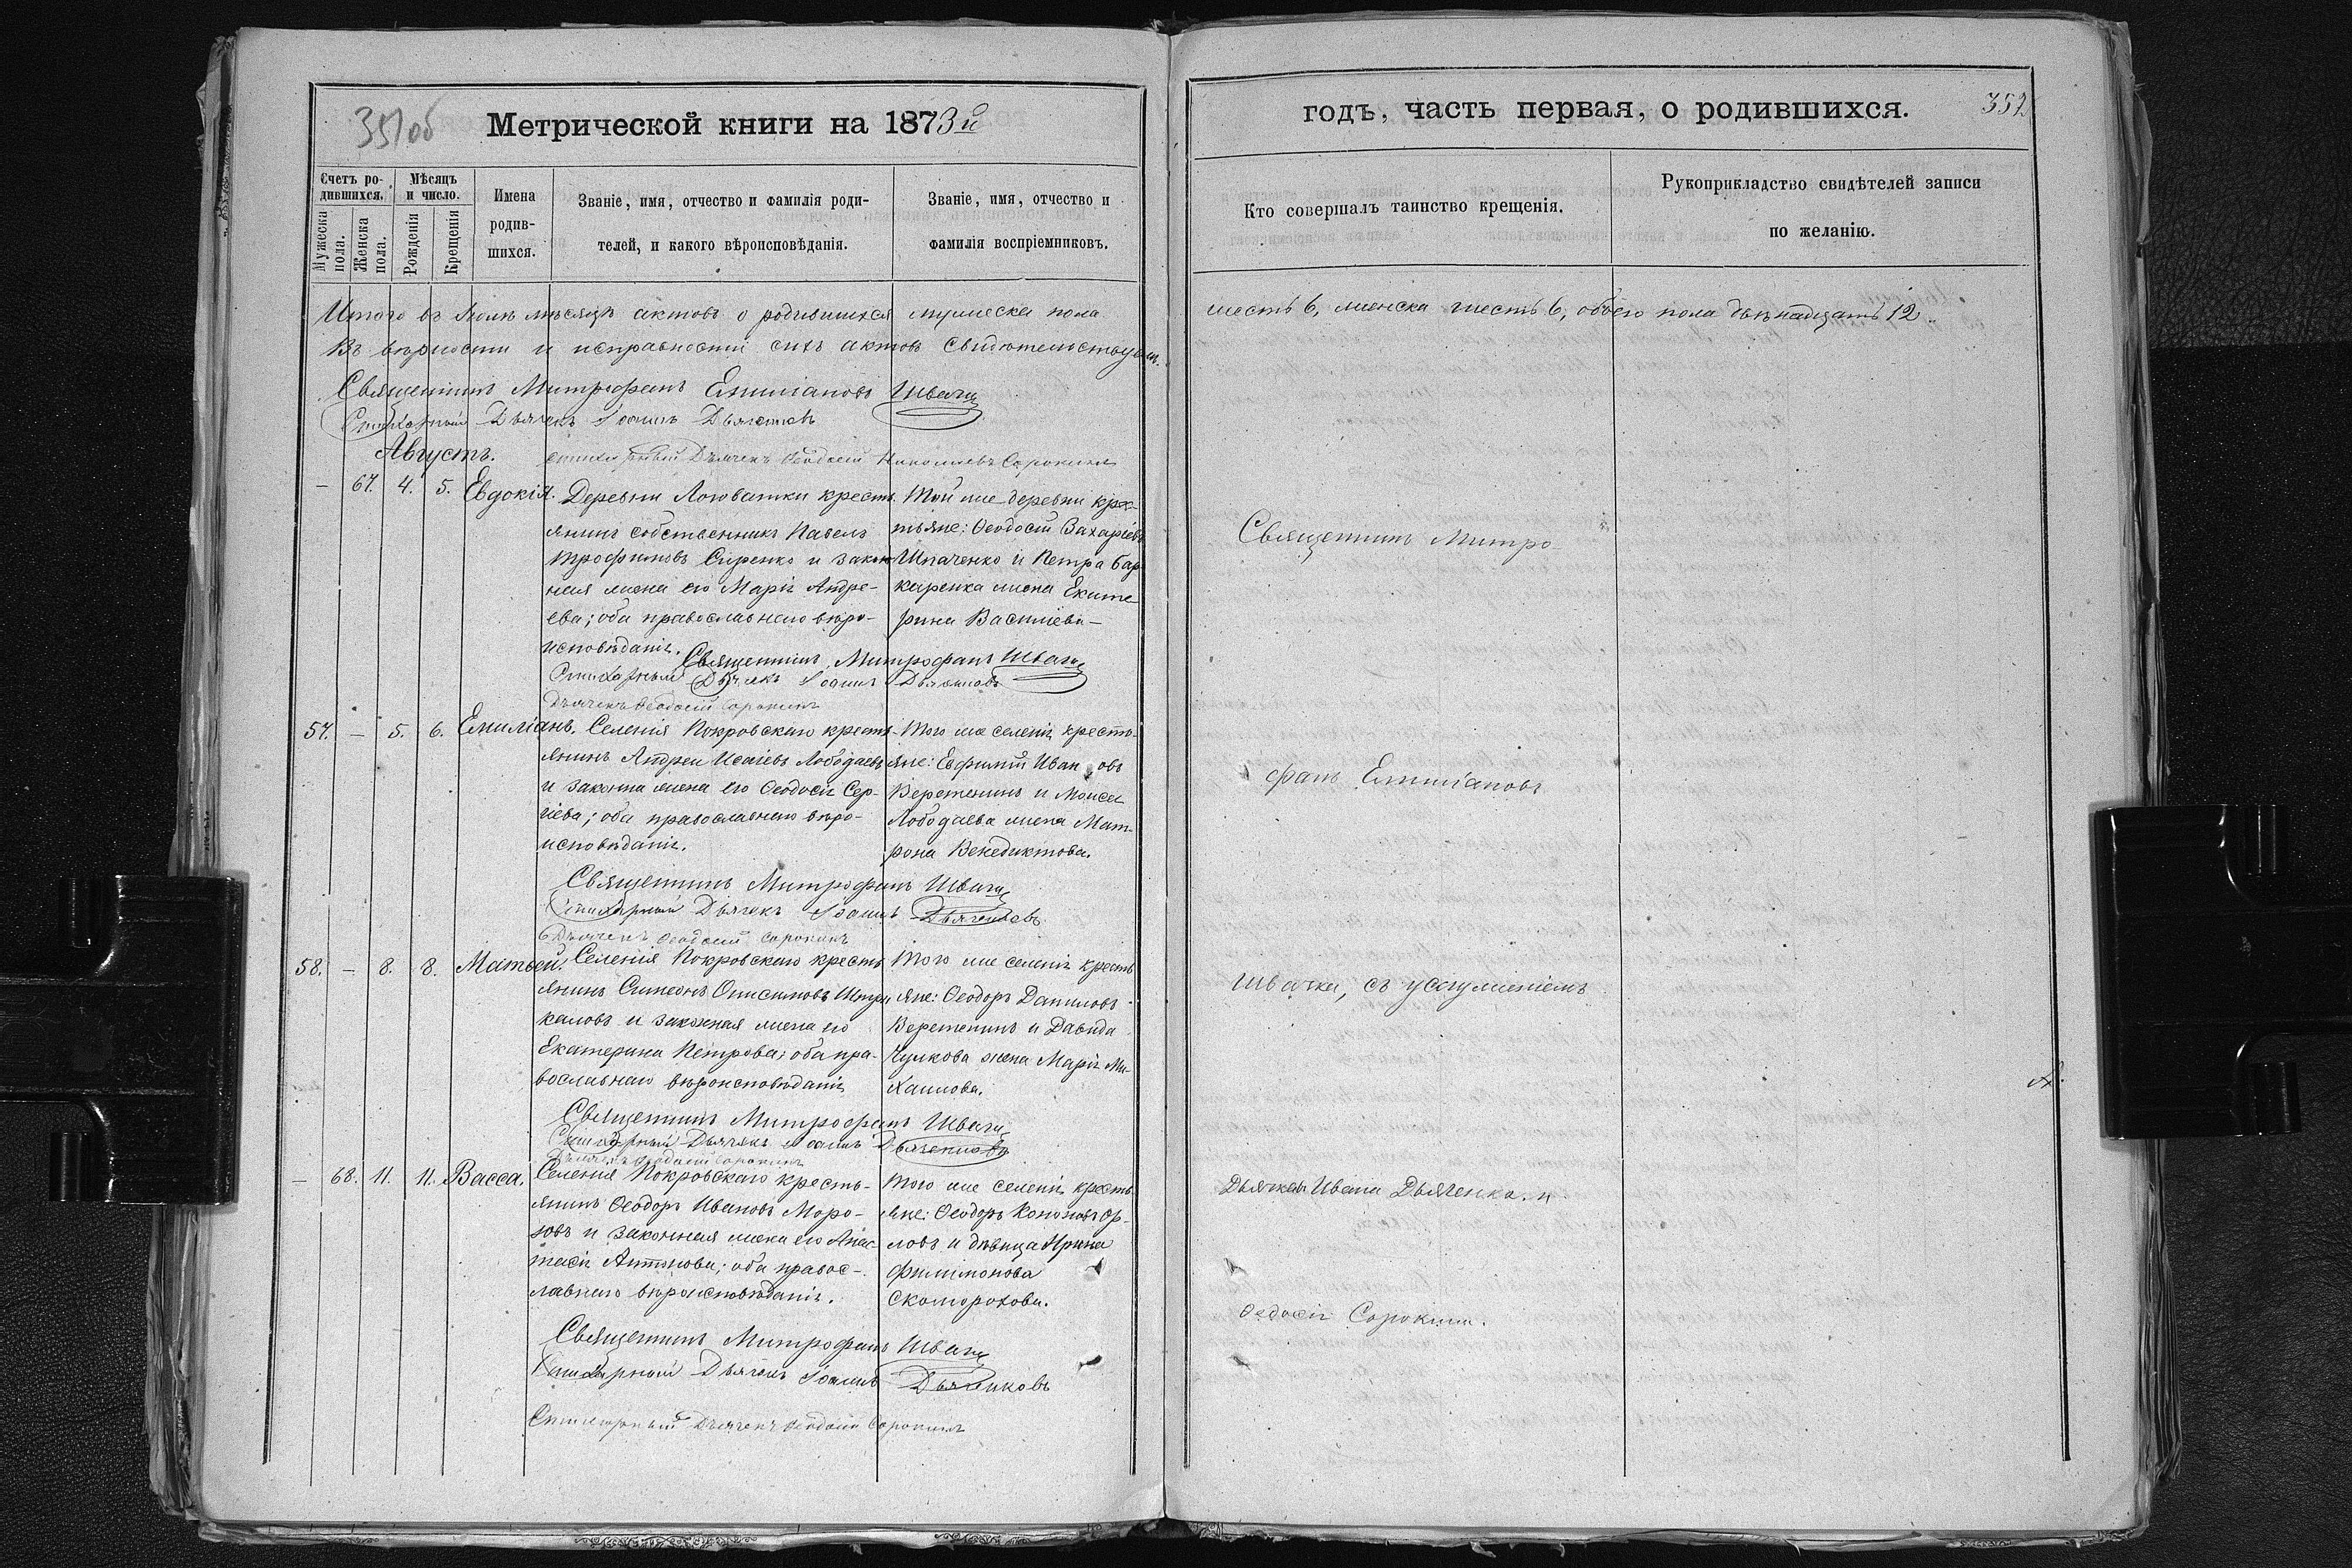 351об
Метрической книги на 1873й
годъ, часть первая, о родившихся.
352
Счетъ ро-
дившихся.
Мужеска
пола.
Женска
пола.
Мѣсяцъ
и число.
Рожденія
Крещенія
Имена
родив-
шихся.
Званіе, имя, отчество и фамилія роди-
телей, и какого вѣроисповѣданія.
Званіе, имя, отчество и
фамилія воспріемниковъ.
Кто совершалъ таинство крещенія.
Рукоприкладство свидѣтелей записи
по желанію.
Итого въ Іюлѣ мѣсяцѣ актовъ о родившихся мужеска пола
шесть 6, женска шесть 6, обоего пола двѣнадцать 12
Въ вѣрности и исправности сихъ актовъ свидѣтельствуемъ.
Священникъ Митрофанъ Емиліановъ Швачка
Стихарный Дьячекъ Іоаннъ Дьяченковъ
Августъ.
стихарный Дьячекъ Ѳеодосій Николаевъ Сорокинъ
— 67. 4. 5. Евдокія.
Деревни Логоватки кресть-
янинъ собственникъ Павелъ
Трофимовъ Сиренко и закон-
ная жена его Марія Андре-
ева; оба православнаго вѣро-
исповѣданія.
Той же деревни крес-
тьяне: Ѳеодосій Захаріевъ
Шпаченко и Петра Бар
каренка жена Екате
рина Василіева —
Священникъ Митрофанъ Швачка
Стихарный Дьячекъ Іоаннъ Дьяченковъ
Дьячекъ Ѳеодосій Сорокинъ
57. — 5. 6. Емиліанъ.
Селенія Покровскаго кресть-
янинъ Андрей Исаіевъ Лободаевъ
и законная жена его Ѳеодосія Сер-
гіева; оба православнаго вѣро-
исповѣданія.
Того же селенія кресть-
яне: Евфимій Ивановъ
Веретенинъ и Моисея
Лободаева жена Мат-
рона Венедиктова.
Священникъ Митрофанъ Швачка
Стихарный Дьячекъ Іоаннъ Дьяченковъ
Дьячекъ Ѳеодосій Сорокинъ
58. — 8. 8. Матѳей.
Селенія Покровскаго кресть
янинъ Симеонъ Онисимовъ
каловъ и законная жена его
Екатерина Петрова; оба пра-
вославнаго вѣроисповѣданія
Того же селенія кресть
яне: Ѳеодоръ Даниловъ
Веретенинъ и Давида
Чулкова жена Марія Ми-
хаилова.
Священникъ Митрофанъ Швачка
Стихарный Дьячекъ Іоаннъ Дьяченковъ
Дьячекъ Ѳеодосій Сорокинъ
— 68. 11. 11. Васса.
Селенія Покровскаго кресть-
янинъ Ѳеодоръ Ивановъ Моро-
зовъ и законная жена его Анас-
тасія Антонова; оба правос-
лавнаго вѣроисповѣданія.
Того же селенія кресть
яне: Ѳеодоръ Кононовъ Ор-
ловъ и дѣвица Ирина
Филимонова
Скоморохова.
Священникъ Митрофанъ Швачка
Стихарный Дьячекъ Іоаннъ Дьяченковъ
Стихарный Дьячекъ Ѳеодосій Сорокинъ
Священникъ Митро-
фанъ Емиліановъ
Швачка, съ услуженіемъ
Дьячковъ Ивана Дьяченка. и
Ѳедосія Сорокина.